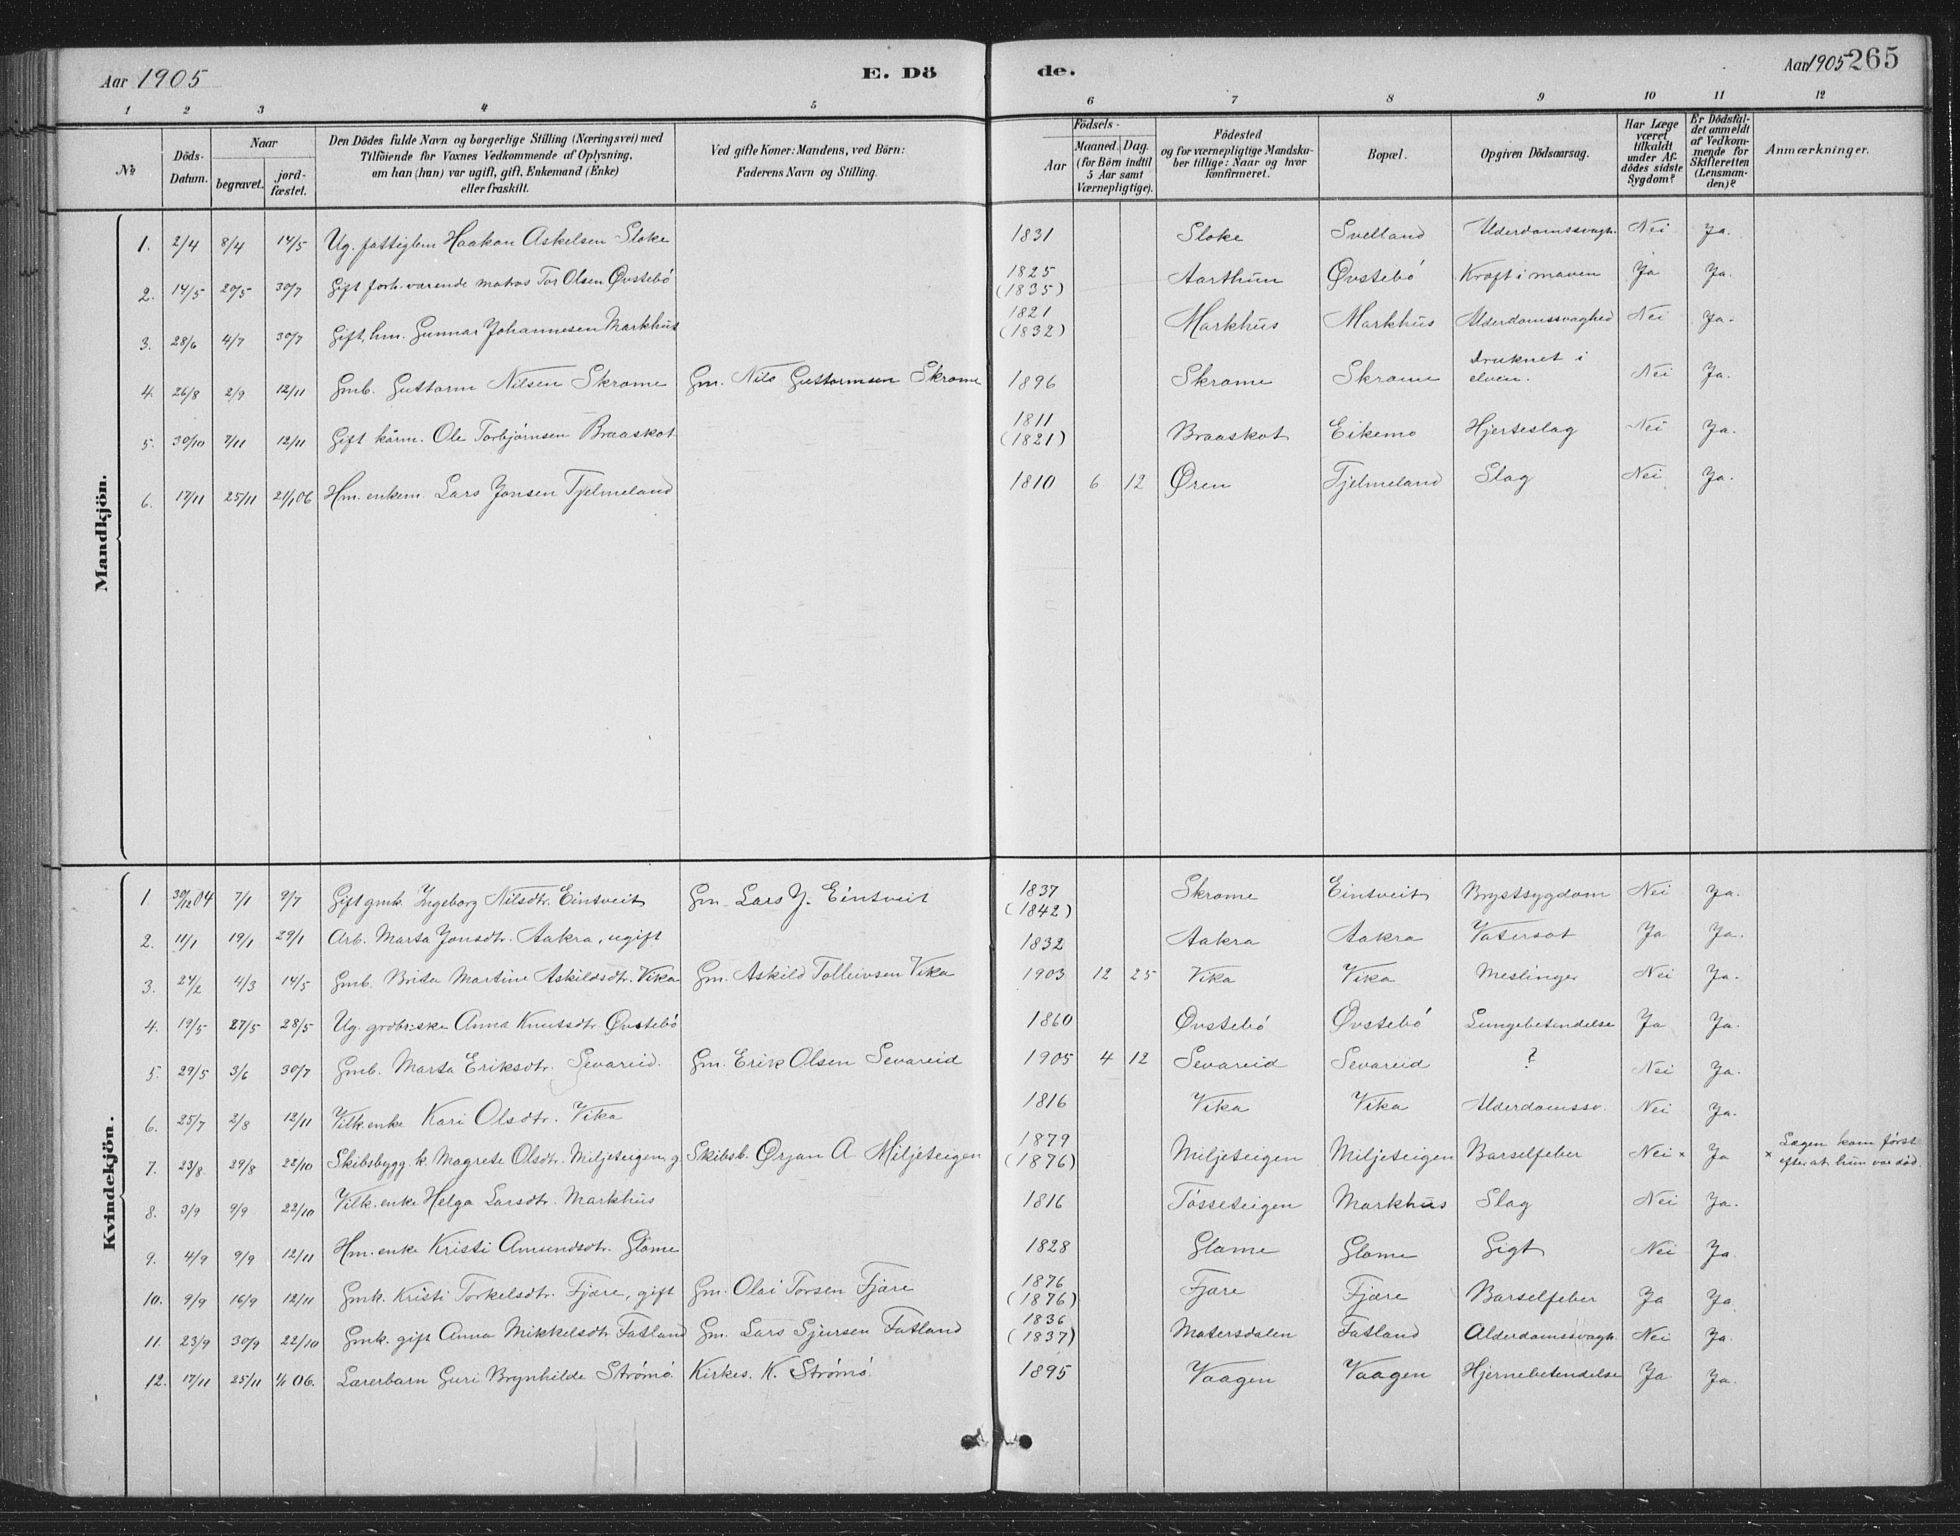 Aar 1905 E. Dö de. Aar 1905 265
1 2 3 4 5 6 7 8 9 10 11 12
No
Döds-Datum.
Naar
begravet.
jord-fæstet.
Den Dödes fulde Navn og borgerlige Stilling (Næringsvei) med
Tilföiende for Voxnes Vedkommende af Oplysning,
om han (hun) var ugift, gift, Enkemand (Enke)
eller fraskilt.
Ved gifte Koner: Mandens, ved Börn:
Faderens Navn og Stilling.
Födsels-
Aar
Maaned. Dag.
(for Börn indtil
5 Aar samt
Værnepligtige).
Födested
og for værnepligtige Mandska-
ber tillige: Naar og hvor
konfirmeret.
Bopæl.
Opgiven Dödsaarsag.
Har Læge
været
tilkaldt
under Af-
dödes sidste
Sygdom?
Er Dödsfal-
det anmeldt
af Vedkom-
mende for
Skifteretten
(Lensman-
den)?
Anmærkninger.
Mandkjön.
1. 2/4 8/4 14/5 Ug. fattiglem Haakon Askelsen Sloke 1831 Sloke Svelland Alderdomssvagh. Nei Ja.
2. 14/5 20/5 30/7 Gift forh. varende matros Tor Olsen Øvstebö 1825 (1835) Aarthun Øvstebö Kræft i maven Ja Ja.
3. 28/6 4/7 30/7 Gift, hm. Gunnar Johannesen Markhus 1821 (1832) Markhus Markhus Alderdomssvaghed Nei Ja.
4. 26/8 2/9 12/11 Gmb. Guttorm Nilsen Skrome Gm. Nils Guttormsen Skrome 1896 Skrome Skrome Druknet i elven. Nei Ja.
5. 30/10 7/11 12/11 Gift kårm. Ole Torbjørnsen Braaskot 1811 (1821) Braaskot Eikemo Hjerteslag Nei Ja.
6. 17/11 25/11 21/1 06 Hm. enkem. Lars Jonsen Tjelmeland 1810 6 12 Øren Tjelmeland Slag Nei Ja.
Kvindekjön.
1 30/12 04 7/1 9/7 Gift gmk. Ingeborg Nilsdtr. Eintveit Gm. Lars J. Eintveit 1837 (1842) Skrome Eintveit Brystsygdom Nei Ja.
2. 11/1 19/1 29/1 Arb. Marta Jonsdtr. Aakra, ugift 1832 Aakra Aakra Vatersot Ja Ja.
3. 24/2 4/3 14/5 Gmb. Brita Martine Askildsdtr. Vika Gm. Askild Tolleivsen Vika 1903 12 25 Vika Vika Meslinger Nei Ja.
4. 19/5 27/5 28/5 Ug. grobr:ske Anna Knutsdtr Øvstebö 1860 Øvstebö Øvstebö Lungebetendelse Ja Ja.
5. 29/5 3/6 30/7 Gmb. Marta Eriksdtr. Sevareid. Gm. Erik Olsen Sevareid 1905 4 12 Sevareid Sevareid ? Nei Ja.
6. 25/7 2/8 12/11 Vilk. enke Kari Olsdtr. Vika 1816 Vika Vika Alderdomssv. Nei Ja.
7. 23/8. 29/8 22/10 Skibsbygg. k. Magrete Olsdtr. Miljeteigen, g Skibsb. Ørjan A. Miljeteigen 1879 (1876) Miljeteigen Miljeteigen Barselfeber Nei × Ja × Lægen kom först efter at hun var död.
8. 3/9 9/9 22/10 Vilk. enke Helga Larsdtr. Markhus 1816 Tösseteigen Markhus Slag Nei Ja.
9. 4/9 9/9 12/11 Hm. enke Kristi Amundsdtr. Glöme 1828 Glame Glame Gigt Nei Ja.
10. 9/9 16/9 12/11 Gmk. Kristi Torkelsdtr. Fjære, gift Gm. Olai Torsen Fjære 1876 (1876) Fjære Fjære Barselfeber Ja Ja.
11. 23/9 30/9 22/10 Gmk. gift Anna Mikkelsdtr Fatland Gm. Lars Sjursen Fatland 1836 (1837) Matersdalen Fatland Alderdomssvagh. Nei Ja.
12. 17/11 25/11 1/1 06. Lærerbarn Guri Brynhilde Strömö. Kirkes. K. Strömö. 1895 Vaagen Vaagen Hjernebetendelse Ja Ja.